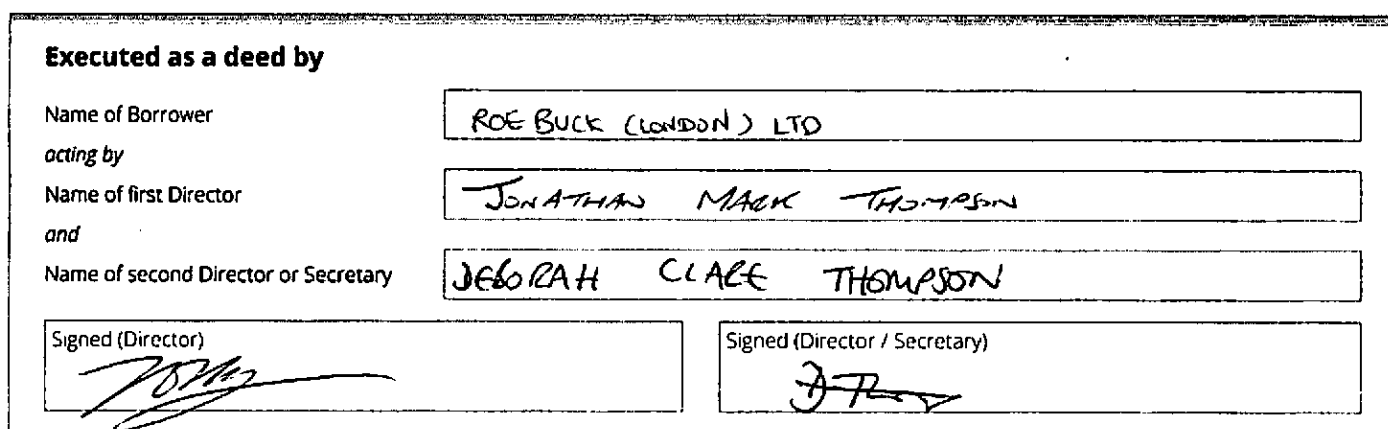 Executed as a deed by
Name of Borrower
ROE BUCK (LONDON) LTD
acting by
Name of first Director
JONATHAN MARK THOMPSON
and
Name of second Director or Secretary
DEBORAH CLARE THOMPSON
Signed (Director)
Signed (Director / Secretary)